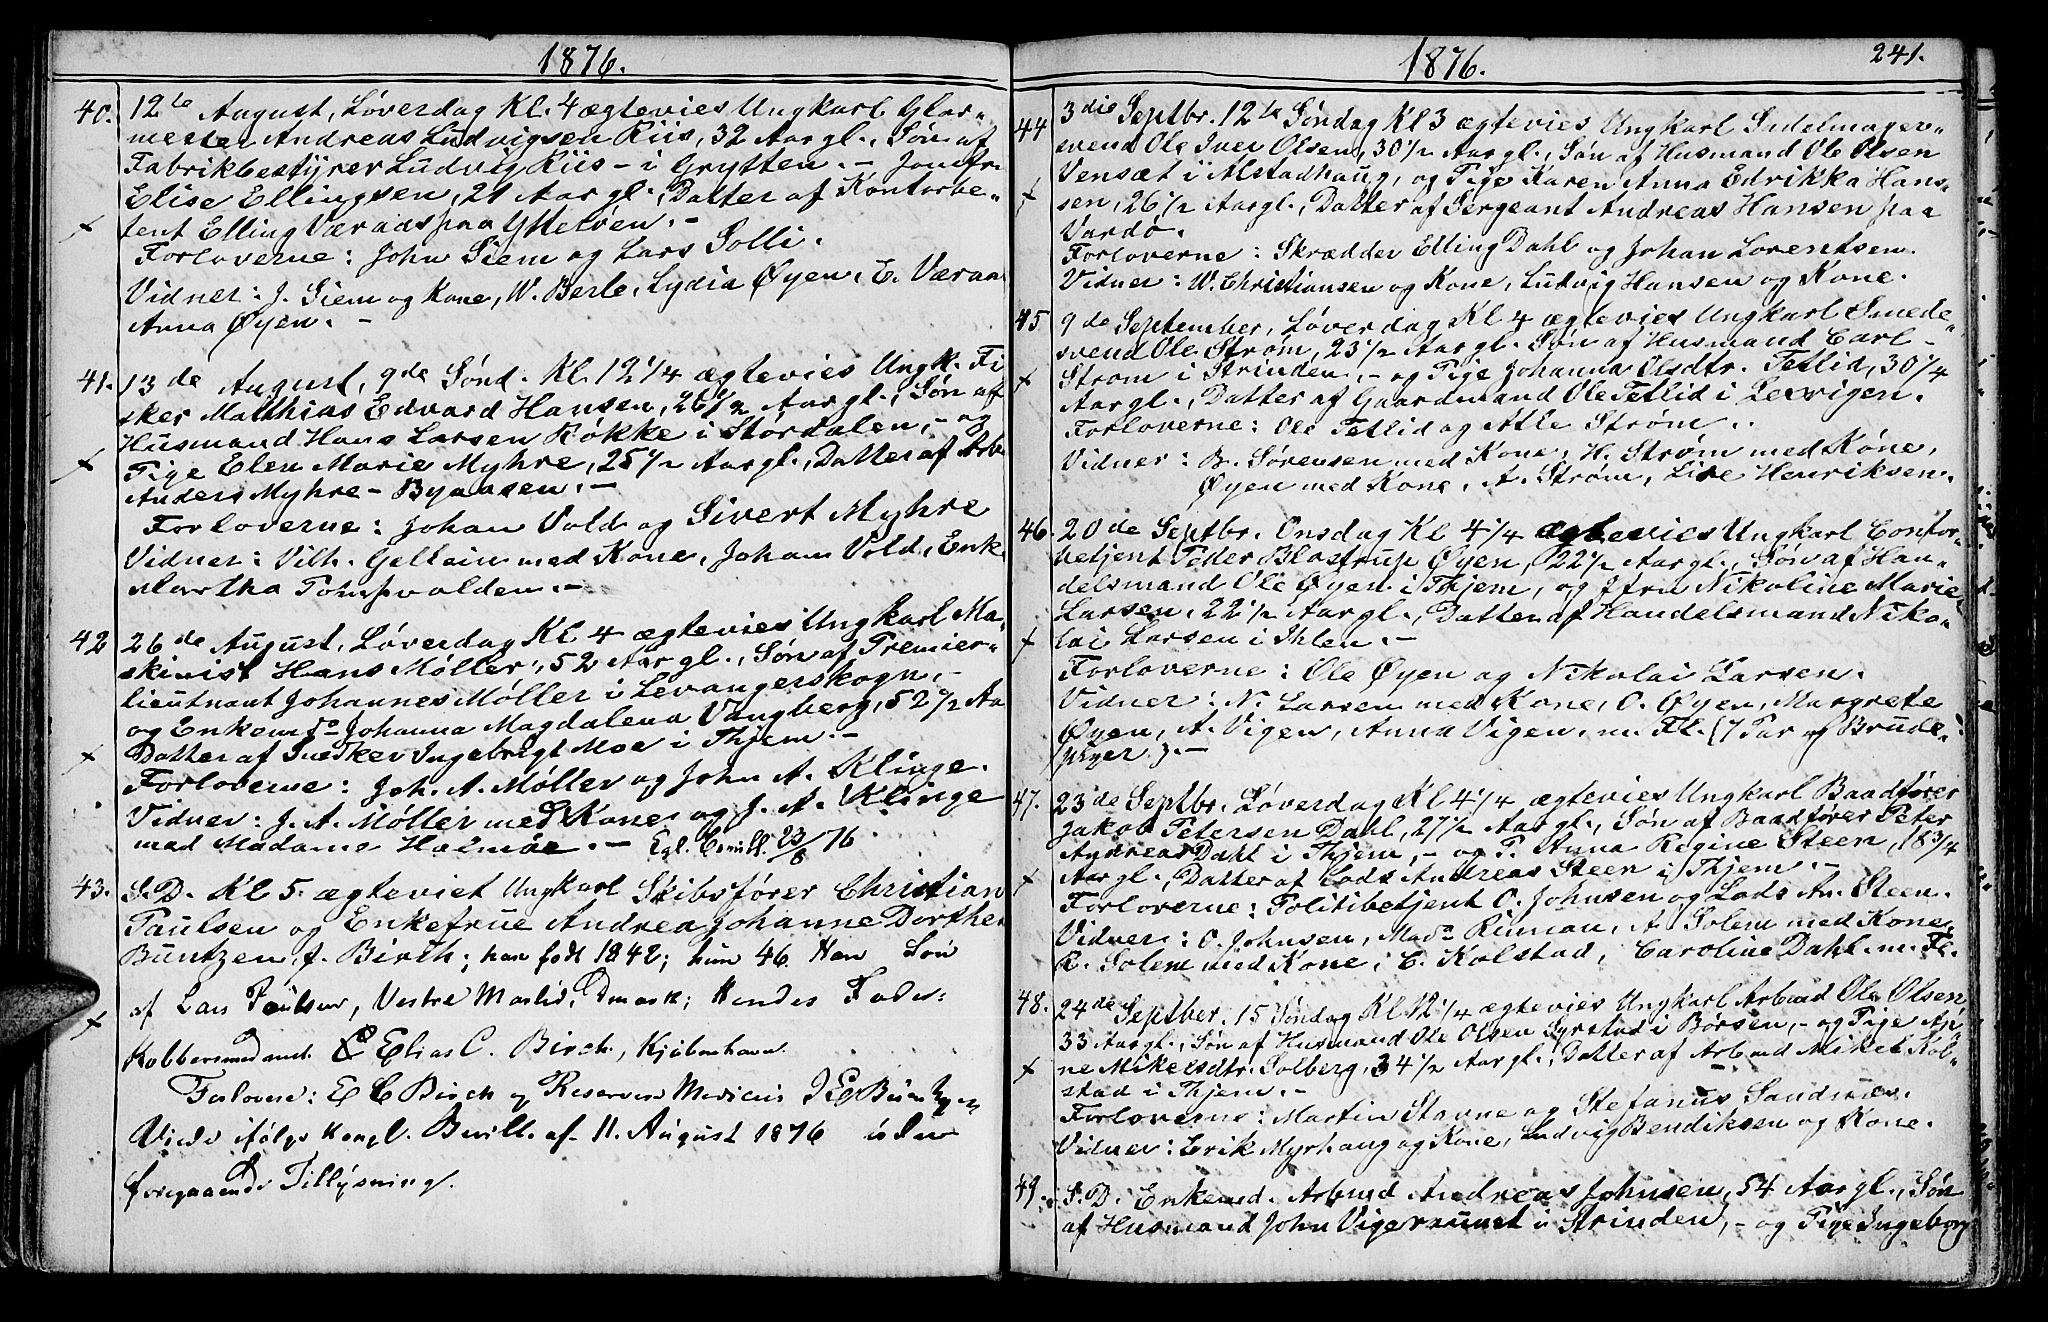 1876.
40. 12te August, Løverdag Kl. 4 ægtevies Ungkarl Glar-
mester Andreas Ludvigsen Riis, 32 Aar gl., Søn af
Fabrikbestyrer Ludvig Riis - i Grytten. - Jomfr.
Elise Ellingsen, 21 Aar gl., Datter af Kontorbe-
tent Elling Væraas paa Ytterøen. -
Forloverne: John Siem og Lars Solli.
Vidner: J. Siem og Kone, W. Berle, Lydia Øyen, E. Væraas
Anna Øyen. -
41. 13de August, 9de Sønd. Kl. 12 1/4 ægtevies Ungk. Fi
sker Matthias Edvard Hansen, 26 1/2 Aar gl., Søn af
Husmand Hans Larsen Røkke i Størdalen, - og
Pige Elen Marie Myhre, 25 1/2 Aar gl., Datter af Arb.
Anders Myhre - Byaasen. -
Forloverne: Johan Vold og Sivert Myhre
Vidner: Vilh. Gellein med Kone, Johan Vold, Enke
Martha Tømpvolden. -
42 26de August, Løverdag Kl. 4 ægtevies Ungkarl Ma-
skinist Hans Møller, 52 Aar gl., Søn af Premier-
lieutnant Johannes Møller i Levangerskogn, -
og Enkemdo Johanna Magdalena Vangberg, 52 1/2 Aar
Datter af Snedker Ingebrigt Moe i Thjem. -
Forloverne: Joh. A. Møller og John A. Klinge.
Vidner: J. A. Møller med Kone og J. A. Klinge
med Madame Holmøe. - Kgl. Bevill. 23/8 76
43. S. D. Kl 5. ægteviet Ungkarl Skibsfører Christian
Paulsen og Enkefrue Andrea Johanne Dorthea
Buntzen, f. Birch; han født 1842; hun 46. Han Søn
af Lars Paulsen, Vestre Marlid, Dmark; Hendes Fader:
Kobbersmedmst. Elias C. Birch, Kjøbenhavn.
Forlovere: E C Birch og Reserve Medicus J E Buntzen
Viede ifølge kongl. Bevill. af 11. August 1876 uden
foregaaende Tillysning.
1876. 241.
44 3die Septbr. 12te Søndag Kl 3 ægtevies Ungkarl Sadelmager-
svend Ole Iver Olsen, 30 1/2 Aar gl., Søn af Husmand Ole Olsen
Vensæt i Alstadhaug, og Pige Karen Anna Edrikka Han-
sen, 26 1/2 Aar gl., Datter af Sergeant Andreas Hansen paa
Vardø.
Forloverne: Skrædder Elling Dahl og Johan Lorentsen.
Vidner: W. Christiansen og Kone, Ludvig Hansen og Kone.
45 9de September, Løverdag Kl 4 ægtevies Ungkarl Smede-
svend Ole Strøm, 23 1/2 Aar gl. Søn af Husmand Carl -
Strøm i Strinden, - og Pige Johanna Olsdtr. Tetlid, 30 1/4
Aar gl., Datter af Gaardmand Ole Tetlid i Lexvigen.
Forloverne: Ole Tetlid og Atle Strøm.
Vidner: B. Sørensen med Kone, H. Strøm med Kone,
Øyen med Kone, A. Strøm, Lise Henriksen.
46. 20de Septbr. Onsdag Kl 4 1/4 ægtevies Ungkarl Contor-
betjent Peder Blastrup Øyen, 22 1/2 Aar gl., Søn af Han-
delsmand Ole Øyen i Thjem, og Jfru Nikoline Marie
Larsen, 22 1/2 Aar gl., Datter af Handelsmand Niko-
lai Larsen i Ihlen. -
Forloverne: Ole Øyen og Nikolai Larsen.
Vidner: N. Larsen med Kone, O. Øyen, Margrete
Øyen, A. Vigen, Anna Vigen, m. Fl. (7 Par og Brude-
piger). -
47. 23de Septbr. Løverdag Kl 4 1/4 ægtevies Ungkarl Baadfører
Jakob Petersen Dahl, 27 1/2 Aar gl., Søn af Baadfører Peter
Andreas Dahl i Thjem, - og P. Anna Regine Steen, 18 3/4
Aar gl., Datter af Lods Andreas Steen i Thjem. -
Forloverne: Politibetjent O. Johnsen og Lods An. Steen.
Vidner: O. Johnsen, Mada Rimau, A Solem med Kone
R. Solem med Kone, C. Kolstad, Caroline Dahl m. Fl.
48. 24de Septber. 15 Søndag Kl 12 1/4 ægtevies Ungkarl Arbmd Ole Olsen
33 Aar gl., Søn af Husmand Ole Olsen Syrstad i Børsen, - og Pige An-
ne Mikelsdtr. Solberg, 34 1/2 Aar gl., Datter af Arbmd Mikel Kol-
stad i Thjem. -
Forloverne: Martin Stavne og Stefanus Sandnæs.
Vidner: Erik Myrhaug og Kone, Ludvig Bendiksen og Kone.
49. S. D. Enkemd. Arbmd Andreas Johnsen, 54 Aar gl., Søn
af Husmand John Vigersunet i Strinden, - og Pige Ingeborg